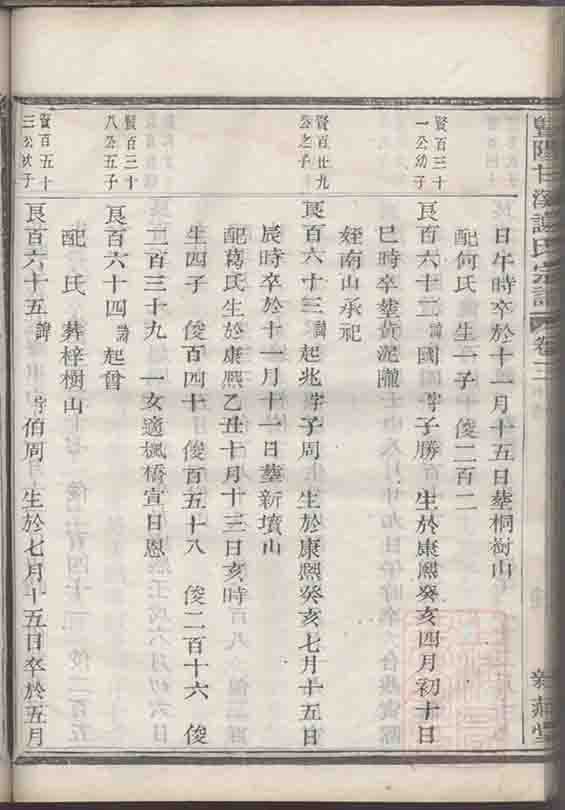 豐陽甘溪譚氏宗譜 卷三
日午時卒於十一月十五日塟桐樹山
配何氏 生一子 俊二百二
賢百三十一公幼子
良百六十二諱國 字子勝 生於康熙癸亥四月初十日
巳時卒塟黃泥隴
姪南山承祀
賢百廿九公之子
良百六十三諱起兆字子周 生於康熙癸亥七月十五日
辰時卒於十一月十一日塟新墳山
配葛氏生於康熙乙丑十月十三日亥時
生四子 俊百四十 俊百五十八 俊二百十六 俊
二百三十九 一女適楓梧宣日恩
賢百三十八公五子
良百六十四諱起曾
配 氏 葬梓樹山
賢百五十三公次子
良百六十五諱 字伯周 生於七月十五日卒於五月